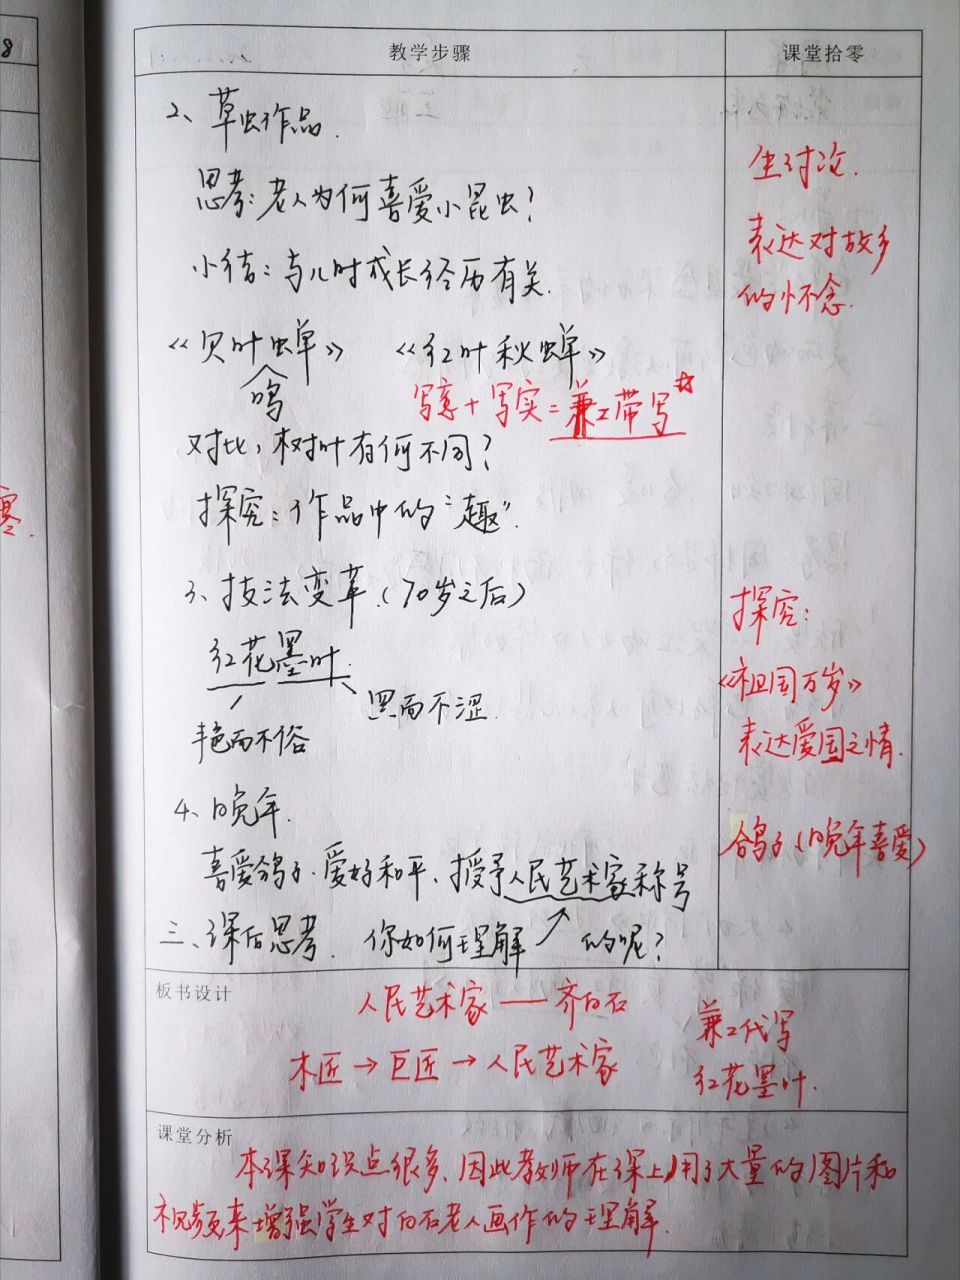 教学步骤
课堂拾零
2、草虫作品.
思考:老人为何喜爱小昆虫?
小结:与儿时成长经历有关.
《贝叶蝉》 《红叶秋蝉》
鸣
写意+写实=兼工带写☆
对比,树叶有何不同?
探究:作品中的“趣”.
3、技法变革.(70岁之后)
红花墨叶.
黑而不涩.
艳而不俗
4、晚年.
喜爱鸽子.爱好和平、授予人民艺术家称号
三、课后思考. 你如何理解 的呢?
生讨论.
表达对故乡
的怀念.
探究:
《祖国万岁》
表达爱国之情.
鸽子(晚年喜爱)
板书设计
人民艺术家——齐白石
木匠→巨匠→人民艺术家
兼工代写
红花墨叶.
课堂分析
本课知识点很多、因此教师在课上用了大量的图片和
视频来增强学生对白石老人画作的理解.
8
寒.